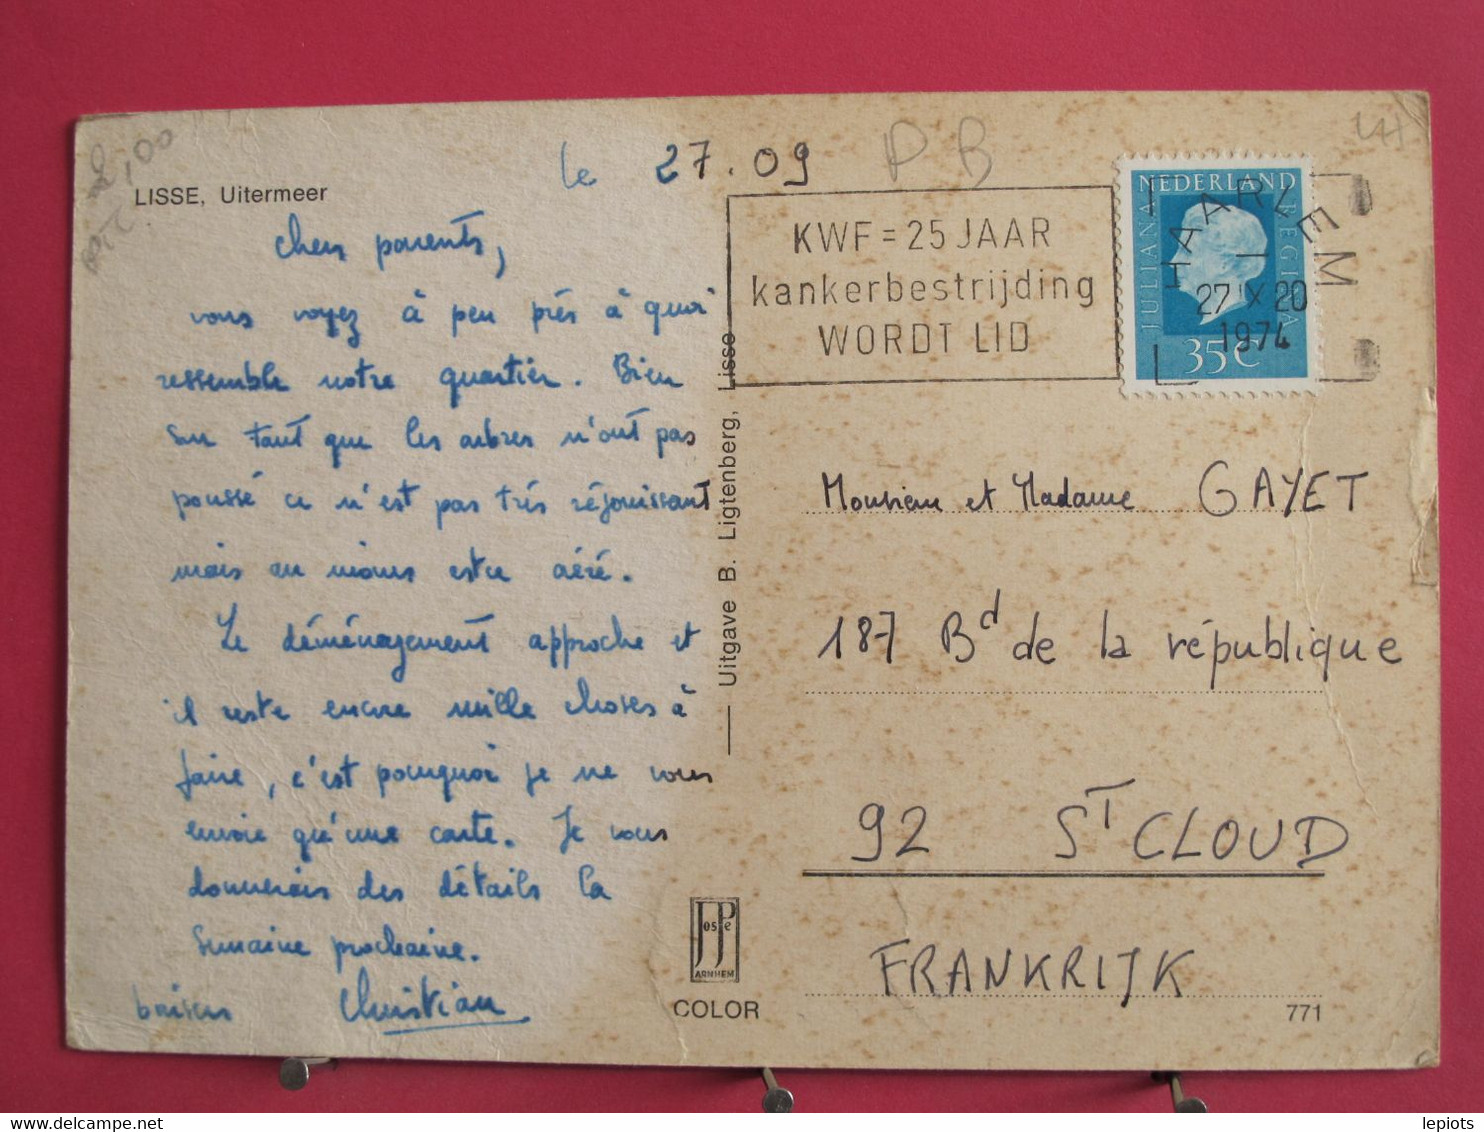 LISSE, Uitermeer
2,00
le 27.09
PB
chers parents,
vous voyez à peu près à quoi
ressemble notre quartier. Bien
sur tant que les arbres n'ont pas
poussé ce n'est pas très réjouissant
mais au moins est ce aéré.
Le déménagement approche et
il reste encore mille choses à
faire, c'est pourquoi je ne vous
envoie qu'une carte. Je vous
donnerais des détails la
semaine prochaine.
baisers Christian
Uitgave B. Ligtenberg, Lisse
KWF = 25 JAAR
kankerbestrijding
WORDT LID
NEDERLAND
JULIANA REGINA
35c
HAARLEM
27 IX 20
1974
Monsieur et Madame GAYET
187 Bd de la république
92 ST CLOUD
FRANKRIJK
JosPe
ARNHEM
COLOR
771
lepiots